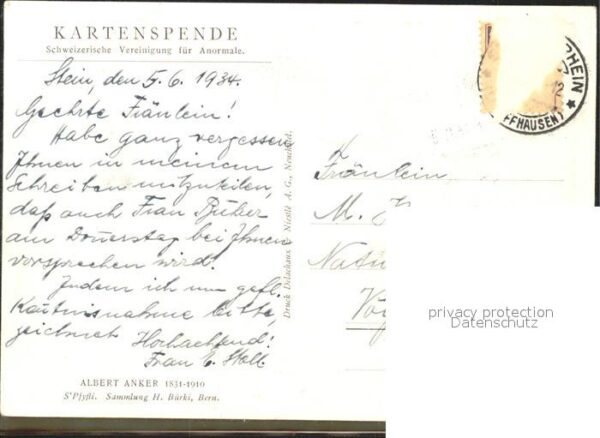 KARTENSPENDE
Schweizerische Vereinigung für Anormale.
Stein, den 5.6. 1934.
Geehrte Fräulein!
Habe ganz vergessen
Ihnen in meinem
Schreiben mitzuteilen,
daß auch Frau
am Donerstag bei Ihnen
vorsprechen wird.
Indem ich um gefl.
Kentnisnahme bitte,
zeichnet Hochachtend!
Frau E. Stoll
ALBERT ANKER 1831-1910
S'Pfyfli. Sammlung H. Bürki, Bern.
Druck Delachaux & Niestlé A. G., Neuchâtel.
RHEIN
FFHAUSEN)
Fräulein
M.
privacy protection
Datenschutz